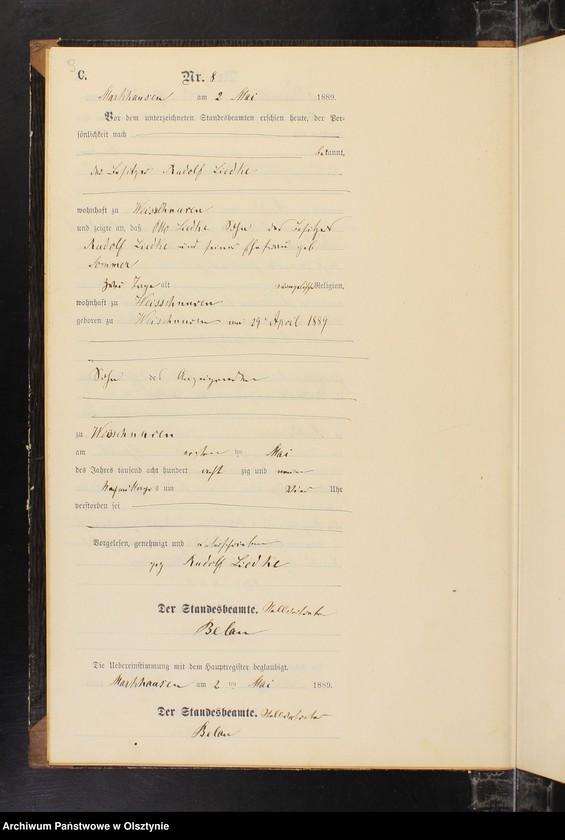 8
C. Nr. 8
Markhausen am 2 Mai 1889.
Vor dem unterzeichneten Standesbeamten erschien heute, der Per-
sönlichkeit nach
bekannt,
der Besitzer Rudolf Liedke
wohnhaft zu Weisschnuren
und zeigte an, daß Otto Liedke Sohn des Besitzers
Rudolf Liedke und seiner Ehefrau geb
Sommer
zwei Tage alt evangelischer Religion,
wohnhaft zu Weisschnuren
geboren zu Weisschnuren am 29 April 1889
Sohn des Anzeigenden
zu Weisschnuren
am ersten ten Mai
des Jahres tausend acht hundert acht zig und neun
Nachmittags s um Uhr
verstorben sei
Vorgelesen, genehmigt und unterschrieben
gez Rudolf Liedke
Der Standesbeamte. Stellvertreter
Belau
Die Uebereinstimmung mit dem Hauptregister beglaubigt.
Markhausen am 2 ten Mai 1889.
Der Standesbeamte. Stellvertreter
Belau
Archiwum Państwowe w Olsztynie